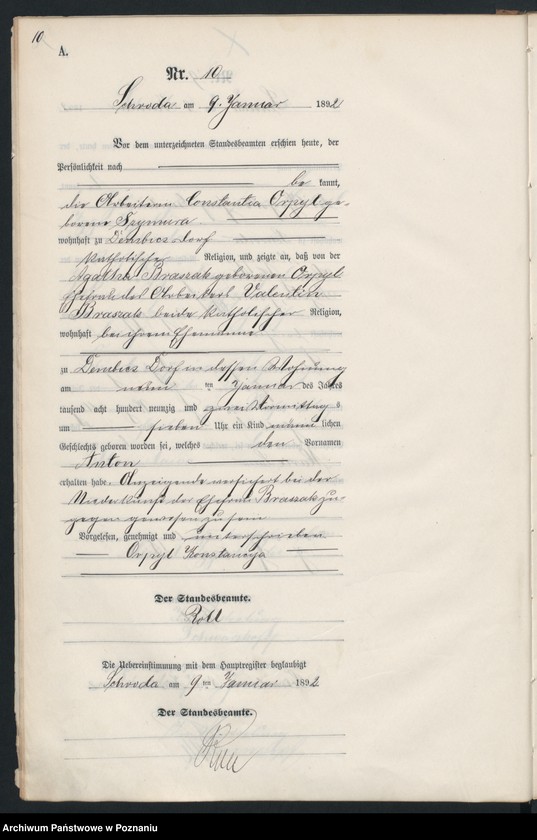 10
A.
Nr. 10
Schroda am 9. Januar 1892
Vor dem unterzeichneten Standesbeamten erschien heute, der
Persönlichkeit nach
be kannt,
die Arbeiterin Constantia Orpyl ge-
borene Szymura
wohnhaft zu Dembicz Dorf
katholischer Religion, und zeigte an, daß von der
Agatha Braszak geborenen Orpyl
Ehefrau des Arbeiters Valentin
Braszak beide katholischer Religion,
wohnhaft bei ihrem Ehemanne
zu Dembicz Dorf in dessen Wohnung
am neun ten Januar des Jahres
tausend acht hundert neunzig und zwei Vormittags
um sieben Uhr ein Kind männlichen
Geschlechts geboren worden sei, welches den Vornamen
Anton
erhalten habe. Anzeigende versichert bei der
Niederkunft der Ehefrau Braszak zu-
gegen gewesen zu sein
Vorgelesen, genehmigt und unterschrieben
Orpyl Konstancya
Der Standesbeamte.
Roll
Die Uebereinstimmung mit dem Hauptregister beglaubigt
Schroda am 9ten Januar 1892
Der Standesbeamte.
Archiwum Państwowe w Poznaniu